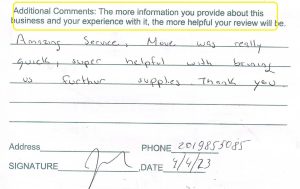 Additional Comments: The more information you provide about this
business and your experience with it, the more helpful your review will be.
Amazing Service, Move was really
quick, super helpful with bringing
us further supplies. Thank you
Address
PHONE 2019855085
SIGNATURE
,DATE 4/4/23